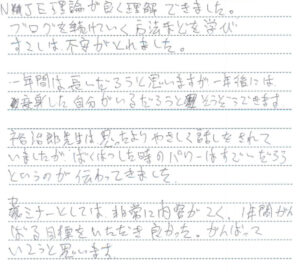 NMJE理論が良く理解できました。
ブログを続けていく方法などを学び
すこしは不安がとれました。
一年間は長いだろうと思いますが一年後には
変身した自分がいるだろうとそうぞうできます
裕治郎先生は思ったよりやさしく話しをされて
いましたがばくはつした時のパワーはすごいだろう
というのが伝わってきました。
セミナーとしては、非常に内容がこく、1年間がん
ばる目標をいただき良かった。がんばって
いこうと思います。